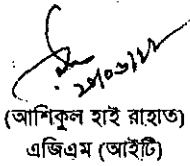 (আশিকুল হাই রাহাত)
এজিএম (আইটি)